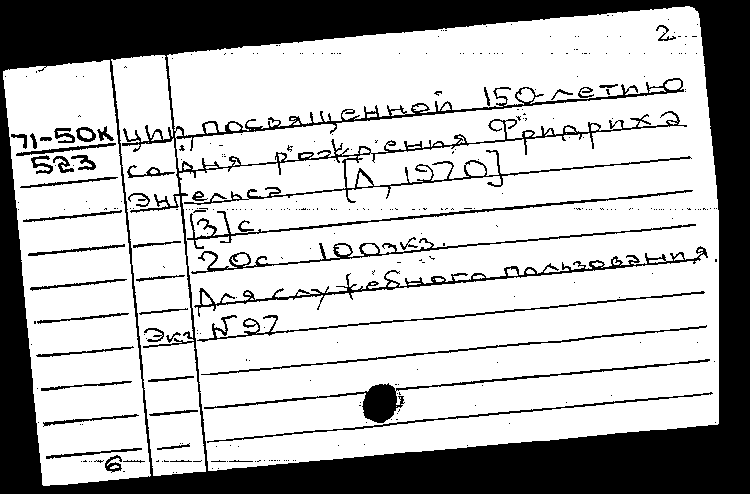 2
71-50к ции, посвященной 150-летию
523 со дня рождения Фридриха
Энгельса. [Л, 1970]
[3] с.
20с 100экз.
Для служебного пользования.
Экз N 97
6